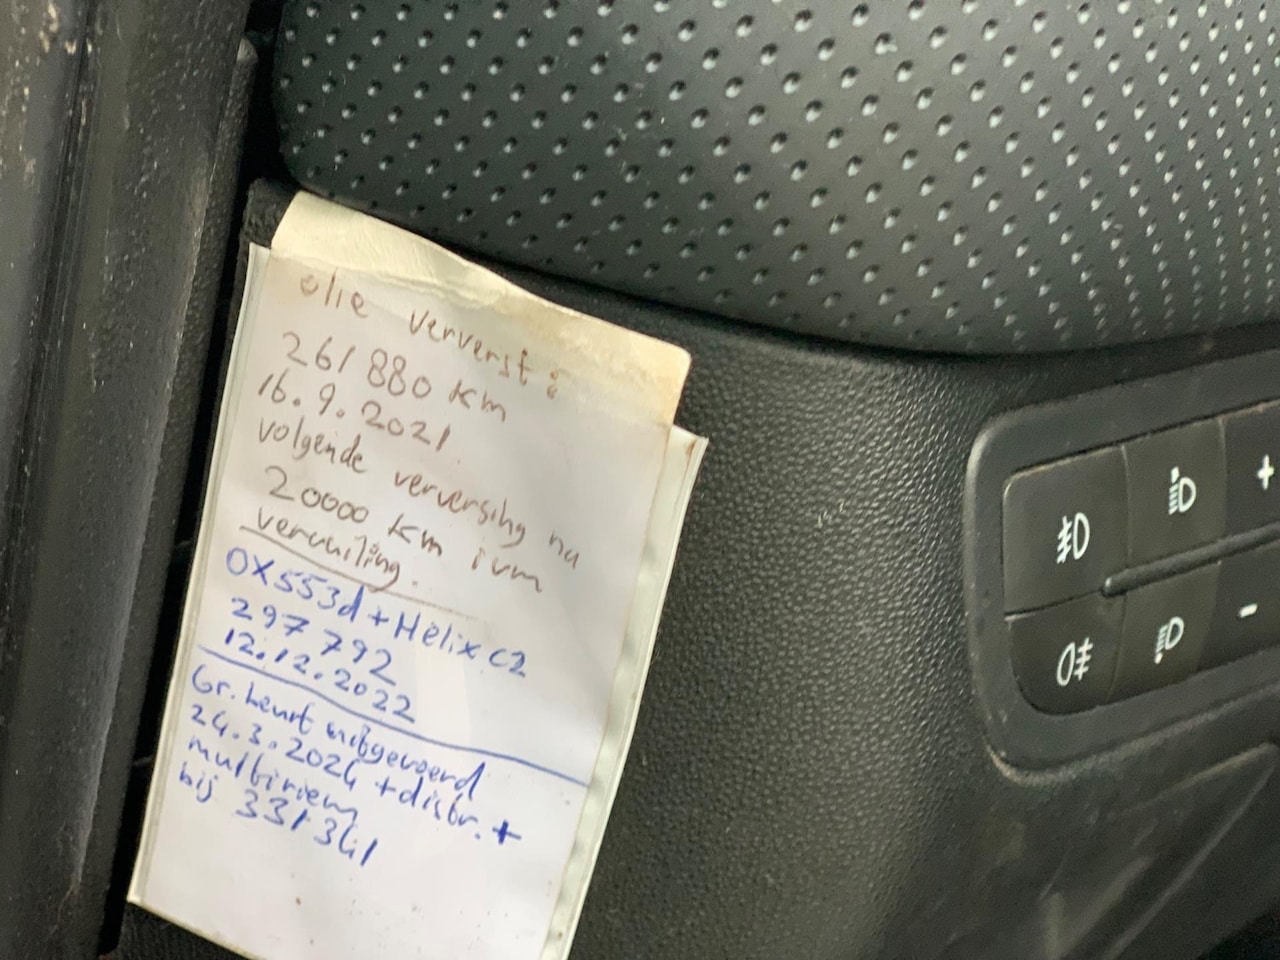 olie ververst :
261880 km
16.9.2021
volgende verversing na
20000 km ivm
vervuiling.
OX553d + Helix C2
297792
12.12.2022
Gr. beurt uitgevoerd
24.3.2024 + distr. +
multiriem
bij 331341
+
-